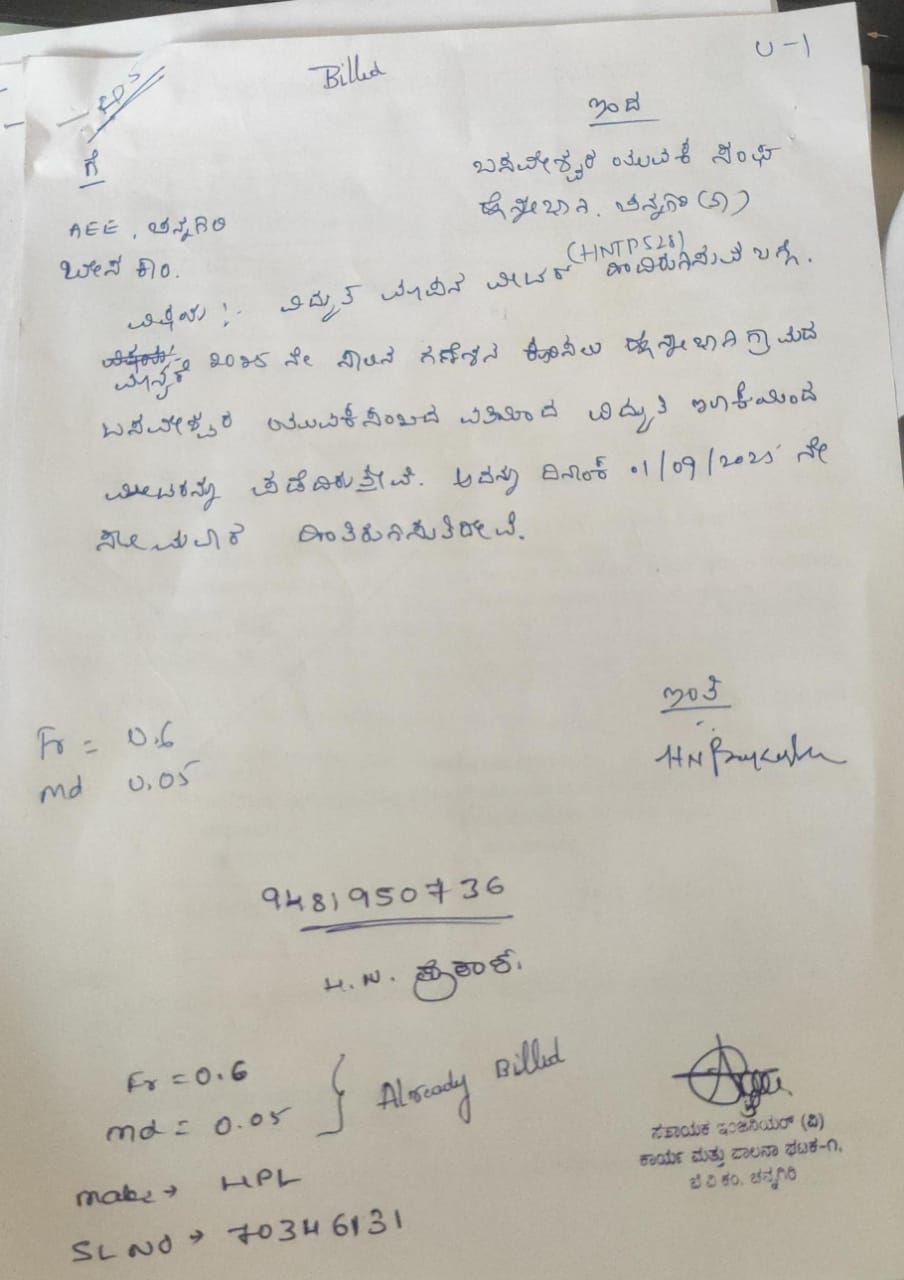 Billed
U-1
ಇಂದ
ಬಸವೇಶ್ವರ ಯುವಕ ಸಂಘ
ಹೊನ್ನೇಬಾಗಿ. ಚನ್ನಗಿರಿ (ತಾ)
ಗೆ
AEE, ಚನ್ನಗಿರಿ
ಬೆಸ್ಕಾಂ.
ವಿಷಯ :- ವಿದ್ಯುತ್ ಮಾಪನ ಮೀಟರ್ (HNTP528) ಹಿಂದಿರುಗಿಸುವ ಬಗ್ಗೆ.
ಮಾನ್ಯರೆ 2025 ನೇ ಸಾಲಿನ ಗಣೇಶನ ಕೂರಿಸಲು ಹೊನ್ನೇಬಾಗಿ ಗ್ರಾಮದ
ಬಸವೇಶ್ವರ ಯುವಕ ಸಂಘದ ವತಿಯಿಂದ ವಿದ್ಯುತ್ ಇಲಾಕೆಯಿಂದ
ಮೀಟರನ್ನು ಪಡೆದಿರುತ್ತೇವೆ. ಅದನ್ನು ದಿನಾಂಕ 01/09/2025 ನೇ
ಸೋಮವಾರ ಹಿಂತಿರುಗಿಸುತ್ತಿದ್ದೇವೆ.
ಇಂತಿ
HN Prakasha
Fr = 0.6
md 0.05
9481950736
H.N. ಪ್ರಕಾಶ.
Fr = 0.6
md = 0.05
Already Billed
make → HPL
SL NO → 70346131
ಸಹಾಯಕ ಇಂಜಿನಿಯರ್ (ವಿ)
ಕಾರ್ಯ ಮತ್ತು ಪಾಲನಾ ಘಟಕ-೧,
ಬೆ.ವಿ.ಕಂ. ಚನ್ನಗಿರಿ